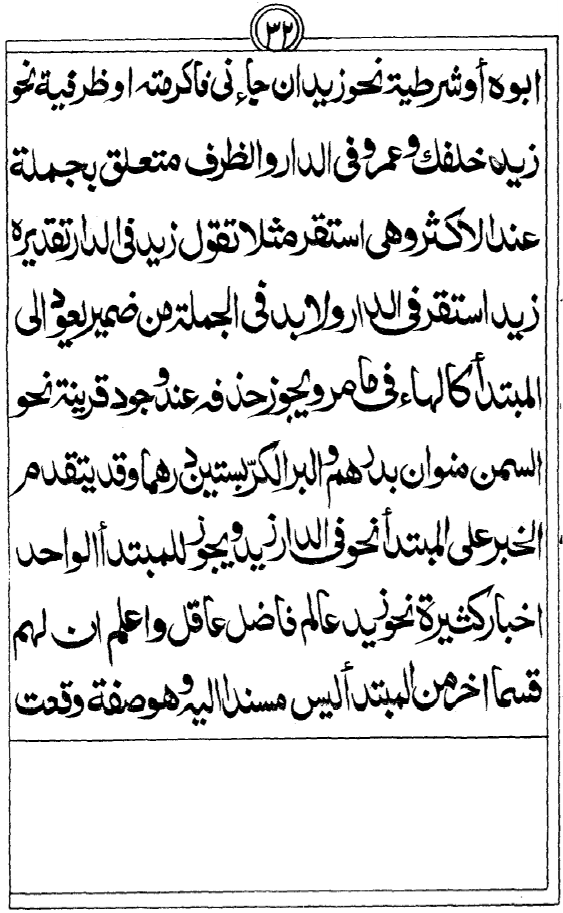 ٣٢
ابوه أوشرطية نحو زيدان جاءنى فاكرمته اوظرفية نحو
زيد خلفك وعمرو فى الدار والظرف متعلق بجملة
عند الاكثر وهى استقر مثلا تقول زيد فى الدار تقديره
زيد استقر فى الدار ولا بد فى الجملة من ضمير يعود الى
المبتدأ كالهاء فى ما مر ويجوز حذفه عند وجود قرينة نحو
السمن منوان بدرهم والبر الكرّ بستين درهما وقد يتقدم
الخبر على المبتدأ نحو فى الدار زيد ويجوز للمبتدأ الواحد
اخبار كثيرة نحو زيد عالم فاضل عاقل واعلم ان لهم
قسما اخر من المبتدأ ليس مسندا اليه وهو صفة وقعت